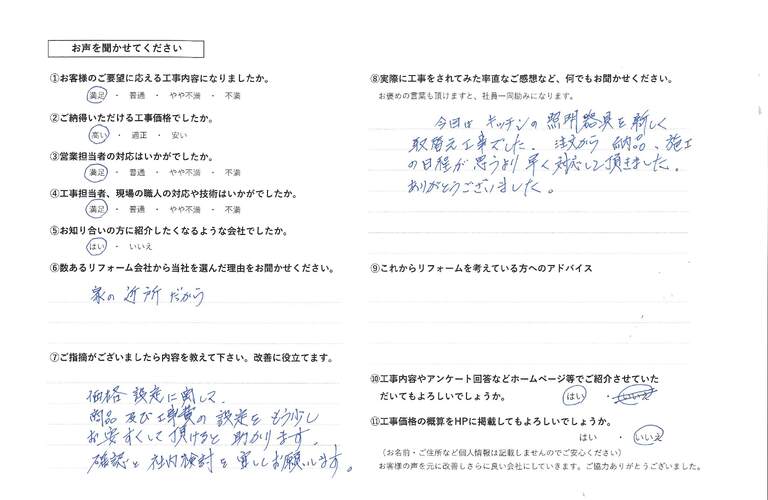 お声を聞かせてください
①お客様のご要望に応える工事内容になりましたか。
満足 ・ 普通 ・ やや不満 ・ 不満
②ご納得いただける工事価格でしたか。
高い ・ 適正 ・ 安い
③営業担当者の対応はいかがでしたか。
満足 ・ 普通 ・ やや不満 ・ 不満
④工事担当者、現場の職人の対応や技術はいかがでしたか。
満足 ・ 普通 ・ やや不満 ・ 不満
⑤お知り合いの方に紹介したくなるような会社でしたか。
はい ・ いいえ
⑥数あるリフォーム会社から当社を選んだ理由をお聞かせください。
家の近所だから
⑦ご指摘がございましたら内容を教えて下さい。改善に役立てます。
価格設定に関して
商品及び工事費の設定をもう少し
お安すくして頂けると助かります。
確認と社内検討を宜しくお願いします。
⑧実際に工事をされてみた率直なご感想など、何でもお聞かせください。
お褒めの言葉も頂けますと、社員一同励みになります。
今回はキッチンの照明器具を新しく
取替え工事でした。注文から納品、施工
の日程が思うより早く対応して頂きました。
ありがとうございました。
⑨これからリフォームを考えている方へのアドバイス
⑩工事内容やアンケート回答などホームページ等でご紹介させていた
だいてもよろしいでしょうか。 はい ・ いいえ
⑪工事価格の概算をHPに掲載してもよろしいでしょうか。
はい ・ いいえ
（お名前・ご住所など個人情報は記載しませんのでご安心ください）
お客様の声を元に改善しさらに良い会社にしていきます。ご協力ありがとうございました。